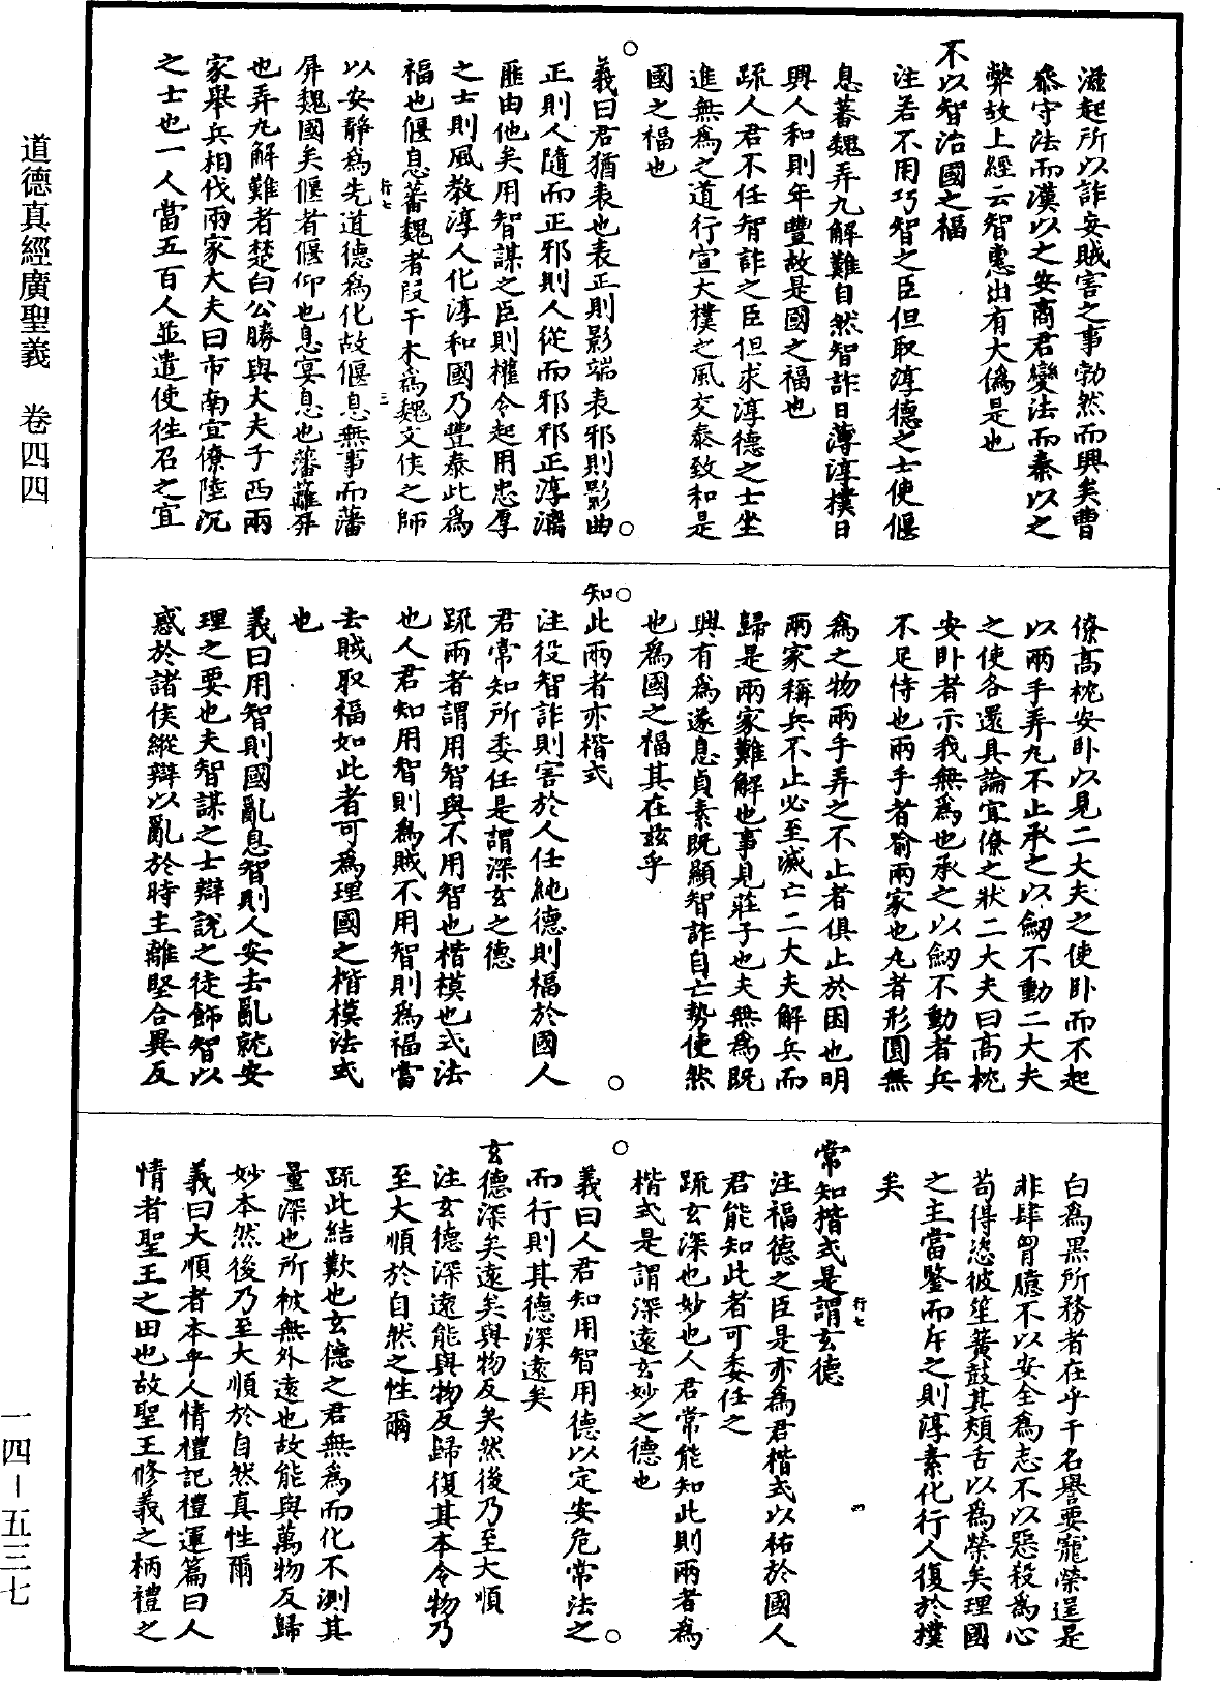 滋起所以詐妄賊害之事勃然而興矣曹
叅守法而漢以之安商君變法而秦以之
弊故上經云智惠出有大僞是也
不以智治國之福
注若不用巧智之臣但取淳德之士使偃
息蕃魏弄丸解難自然智詐日薄淳樸日
興人和則年豐故是國之福也
疏人君不任智詐之臣但求淳德之士坐
進無爲之道行宣大樸之風交泰致和是
國之福也
義曰君猶表也表正則影端表邪則影曲
正則人隨而正邪則人從而邪邪正淳漓
匪由他矣用智謀之臣則權令起用忠厚
之士則風教淳人化淳和國乃豐泰此爲
福也偃息蕃魏者段干木爲魏文侯之師
行七 三
以安靜爲先道德爲化故偃息無事而藩
屏魏國矣偃者偃仰也息宴息也藩籬屏
也弄丸解難者楚白公勝與大夫子西兩
家舉兵相伐兩家大夫曰市南宜僚陸沉
之士也一人當五百人並遣使往召之宜
僚高枕安卧以見二大夫之使卧而不起
以兩手弄丸不止承之以劒不動二大夫
之使各還具論宜僚之狀二大夫曰高枕
安卧者示我無爲也承之以劒不動者兵
不足恃也兩手者喻兩家也丸者形圓無
爲之物兩手弄之不止者俱止於困也明
兩家稱兵不止必至滅亡二大夫解兵而
歸是兩家難解也事見莊子也夫無爲既
興有爲遂息貞素既顯智詐自亡勢使然
也爲國之福其在兹乎
知此兩者亦楷式
注役智詐則害於人任純德則福於國人
君常知所委任是謂深玄之德
疏兩者謂用智與不用智也楷模也式法
也人君知用智則爲賊不用智則爲福當
去賊取福如此者可爲理國之楷模法式
也
義曰用智則國亂息智則人安去亂就安
理之要也夫智謀之士辯說之徒飾智以
惑於諸侯縱辯以亂於時主離堅合異反
白爲黑所務者在乎干名譽要寵榮逞是
非肆胷臆不以安全爲志不以惡殺爲心
苟得恣彼笙簧鼓其頰舌以爲榮矣理國
之主當鑒而斥之則淳素化行人復於樸
矣
行七 四
常知楷式是謂玄德
注福德之臣是亦爲君楷式以祐於國人
君能知此者可委任之
疏玄深也妙也人君常能知此則兩者爲
楷式是謂深遠玄妙之德也
義曰人君知用智用德以定安危常法之
而行則其德深遠矣
玄德深矣遠矣與物反矣然後乃至大順
注玄德深遠能與物反歸復其本令物乃
至大順於自然之性爾
疏此結歎也玄德之君無爲而化不測其
量深也所被無外遠也故能與萬物反歸
妙本然後乃至大順於自然真性爾
義曰大順者本乎人情禮記禮運篇曰人
情者聖王之田也故聖王修義之柄禮之
道德真經廣聖義 卷四四
一四－五三七